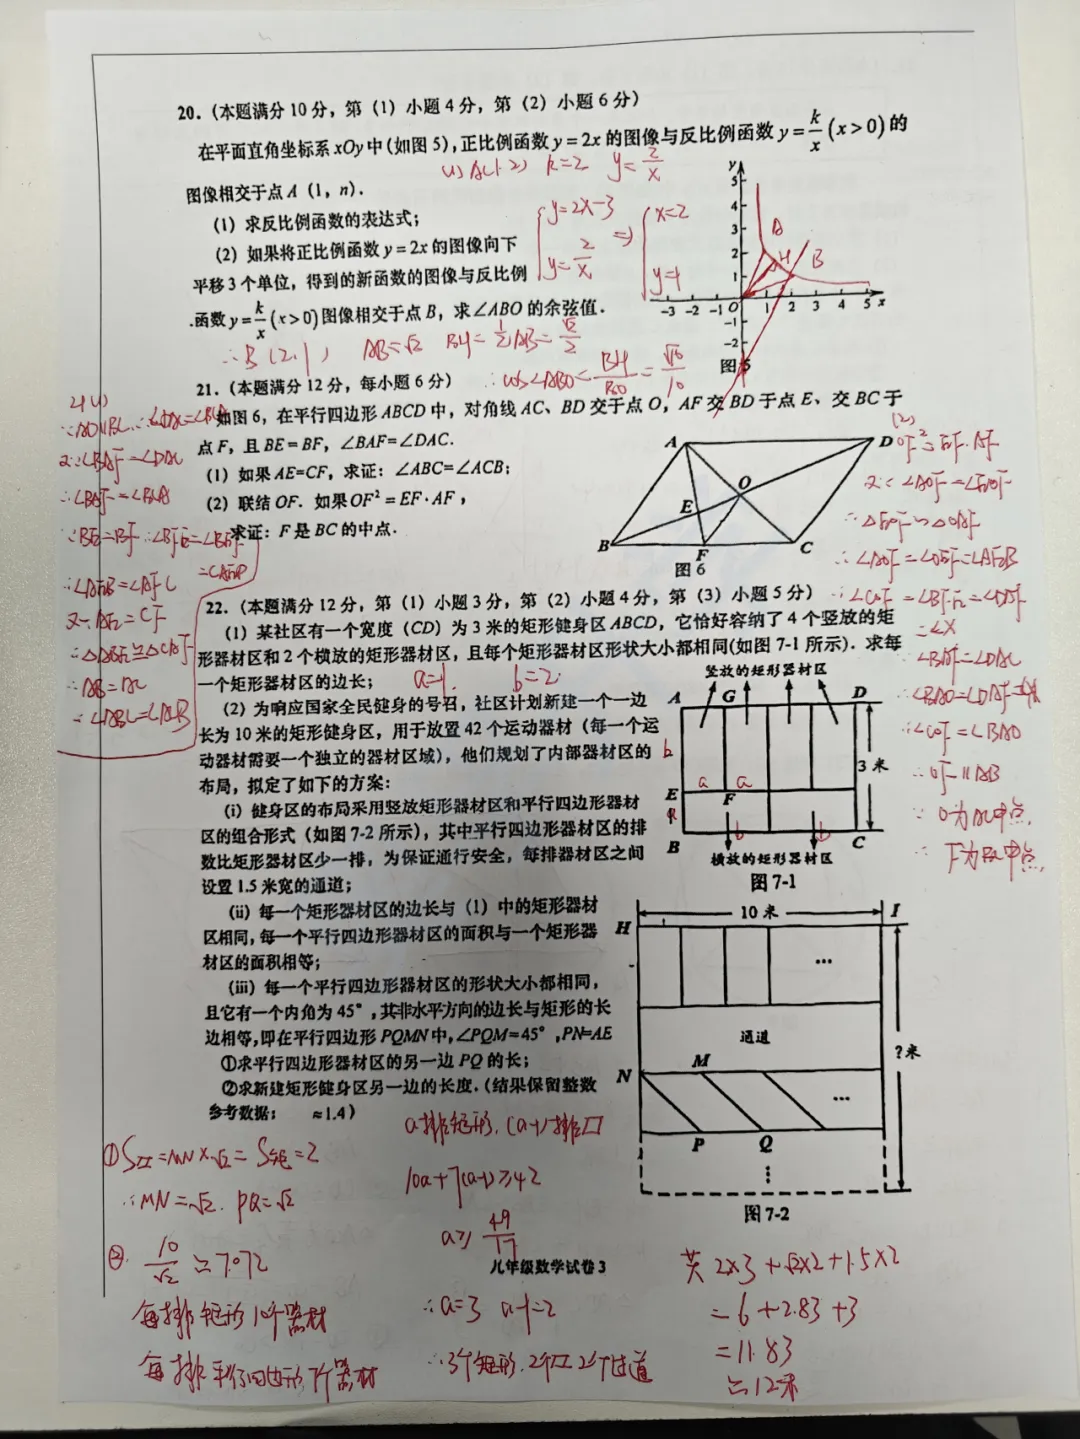 20.（本题满分 10 分，第（1）小题 4 分，第（2）小题 6 分）
在平面直角坐标系 xOy 中（如图 5），正比例函数 y = 2x 的图像与反比例函数 y = k/x (x > 0) 的
图像相交于点 A（1，n）.
(1) A(1.2) k=2 y=2/x
（1）求反比例函数的表达式；
（2）如果将正比例函数 y = 2x 的图像向下
平移 3 个单位，得到的新函数的图像与反比例
函数 y = k/x (x > 0) 图像相交于点 B，求∠ABO 的余弦值.
y=2x-3
y=2/x
⇒
x=2
y=1
∴B(2,1) AB=√2 BH=1/2AB=√2/2
∴cos∠ABO=BH/BO=√10/10
y
5
4
3
2
1
-3 -2 -1 O 1 2 3 4 5 x
-1
-2
A
H
B
图 5
21.（本题满分 12 分，每小题 6 分）
如图 6，在平行四边形 ABCD 中，对角线 AC、BD 交于点 O，AF 交 BD 于点 E、交 BC 于
点 F，且 BE = BF，∠BAF=∠DAC.
（1）如果 AE=CF，求证：∠ABC=∠ACB；
（2）联结 OF. 如果 OF² = EF · AF，
求证：F 是 BC 的中点.
A D
O
E
B F C
图 6
21(1)
∵AD∥BC ∴∠DAC=∠BCA
又∵∠BAF=∠DAC
∴∠BAF=∠BCA
∵BE=BF ∴∠BFE=∠BEF
∴∠AEB=∠AFC
又∵AE=CF
∴△ABE≌△CAF
∴AB=AC
∴∠ABC=∠ACB
(2)
OF²=EF·AF
又∵∠AOF=∠EOF
∴△EOF∽△OAF
∴∠AOF=∠OEF=∠AEB
∴∠COF=∠BFE=∠DAF
∠BAF=∠DAC
∴∠COF=∠BAO
∴OF∥AB
∵O为AC中点
∴F为BC中点.
22.（本题满分 12 分，第（1）小题 3 分，第（2）小题 4 分，第（3）小题 5 分）
（1）某社区有一个宽度（CD）为 3 米的矩形健身区 ABCD，它恰好容纳了 4 个竖放的矩
形器材区和 2 个横放的矩形器材区，且每个矩形器材区形状大小都相同(如图 7-1 所示). 求每
一个矩形器材区的边长；
a=1. b=2
（2）为响应国家全民健身的号召，社区计划新建一个一边
长为 10 米的矩形健身区，用于放置 42 个运动器材（每一个运
动器材需要一个独立的器材区域），他们规划了内部器材区的
布局，拟定了如下的方案：
（i）健身区的布局采用竖放矩形器材区和平行四边形器材
区的组合形式（如图 7-2 所示），其中平行四边形器材区的排
数比矩形器材区少一排，为保证通行安全，每排器材区之间
设置 1.5 米宽的通道；
（ii）每一个矩形器材区的边长与（1）中的矩形器材
区相同，每一个平行四边形器材区的面积与一个矩形器
材区的面积相等；
（iii）每一个平行四边形器材区的形状大小都相同，
且它有一个内角为 45°，其非水平方向的边长与矩形的长
边相等，即在平行四边形 PQMN 中，∠PQM=45°，PN=AE
①求平行四边形器材区的另一边 PQ 的长；
②求新建矩形健身区另一边的长度.（结果保留整数
参考数据： ≈1.4）
竖放的矩形器材区
A G D
b
a a
3 米
E F
a
b b
B C
横放的矩形器材区
图 7-1
10 米
H I
…
通道
? 米
N M
…
P Q
⋮
图 7-2
①S▱=MN×√2=S矩=2
∴MN=√2. PQ=√2
②. 10/√2≈7.072
每排矩形10个器材
每排平行四边形7个器材
a排矩形. (a-1)排▱
10a+7(a-1)≥42
a≥49/17
∴a=3 a-1=2
∴3个矩形. 2个▱ 2个过道
共 2×3+√2×2+1.5×2
=6+2.83+3
=11.83
≈12米
八年级数学试卷 3